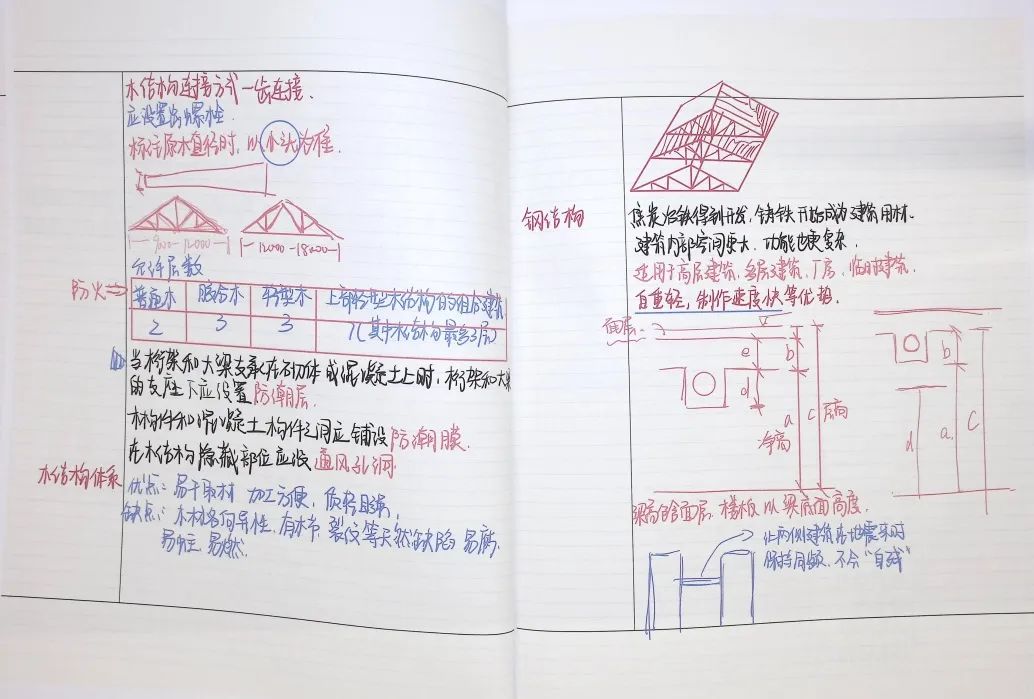 木结构连接方式一齿连接.
应设置保险螺栓.
标注原木直径时,以小头为准.
9000-12000
12000-18000
允许层数
防火⇒
普通木 胶合木 轻型木 上部轻型木结构的组合建筑
2 3 3 7(其中木结构最高3层)
当桁架和大梁支承在砌体或混凝土上时,桁架和大梁
的支座下应设置防潮层.
木构件和混凝土构件之间应铺设防潮膜.
在木结构隐蔽部位应设通风孔洞
木结构体系
优点:易于取材 加工方便,质轻且强,
缺点:木材各向异性,有木节、裂纹等天然缺陷 易腐,
易蛀、易燃.
钢结构
焦炭冶铁得到开发,铸铁开始成为建筑用材.
建筑内部空间更大、功能也更复杂.
适用于高层建筑、多层建筑、厂房、临时建筑.
自重轻,制作速度快等优越.
面层
e
b
d
a
c
净高
层高
b
d
a
c
梁高含面层、楼板以梁底面高度.
让两侧建筑在地震来时
保持同频、不会“自残”